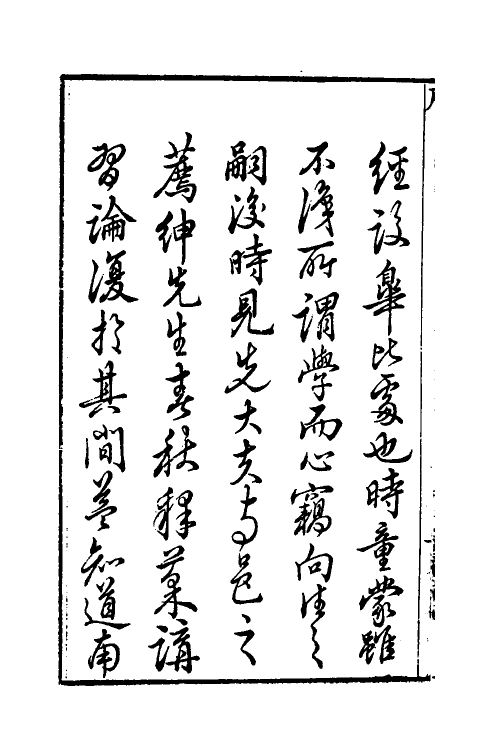 經設臯比處也時童蒙雖
不識所謂學而心竊向往之
嗣後時見先大夫与邑之
薦紳先生春秋釋菜講
習論復於其間益知道南